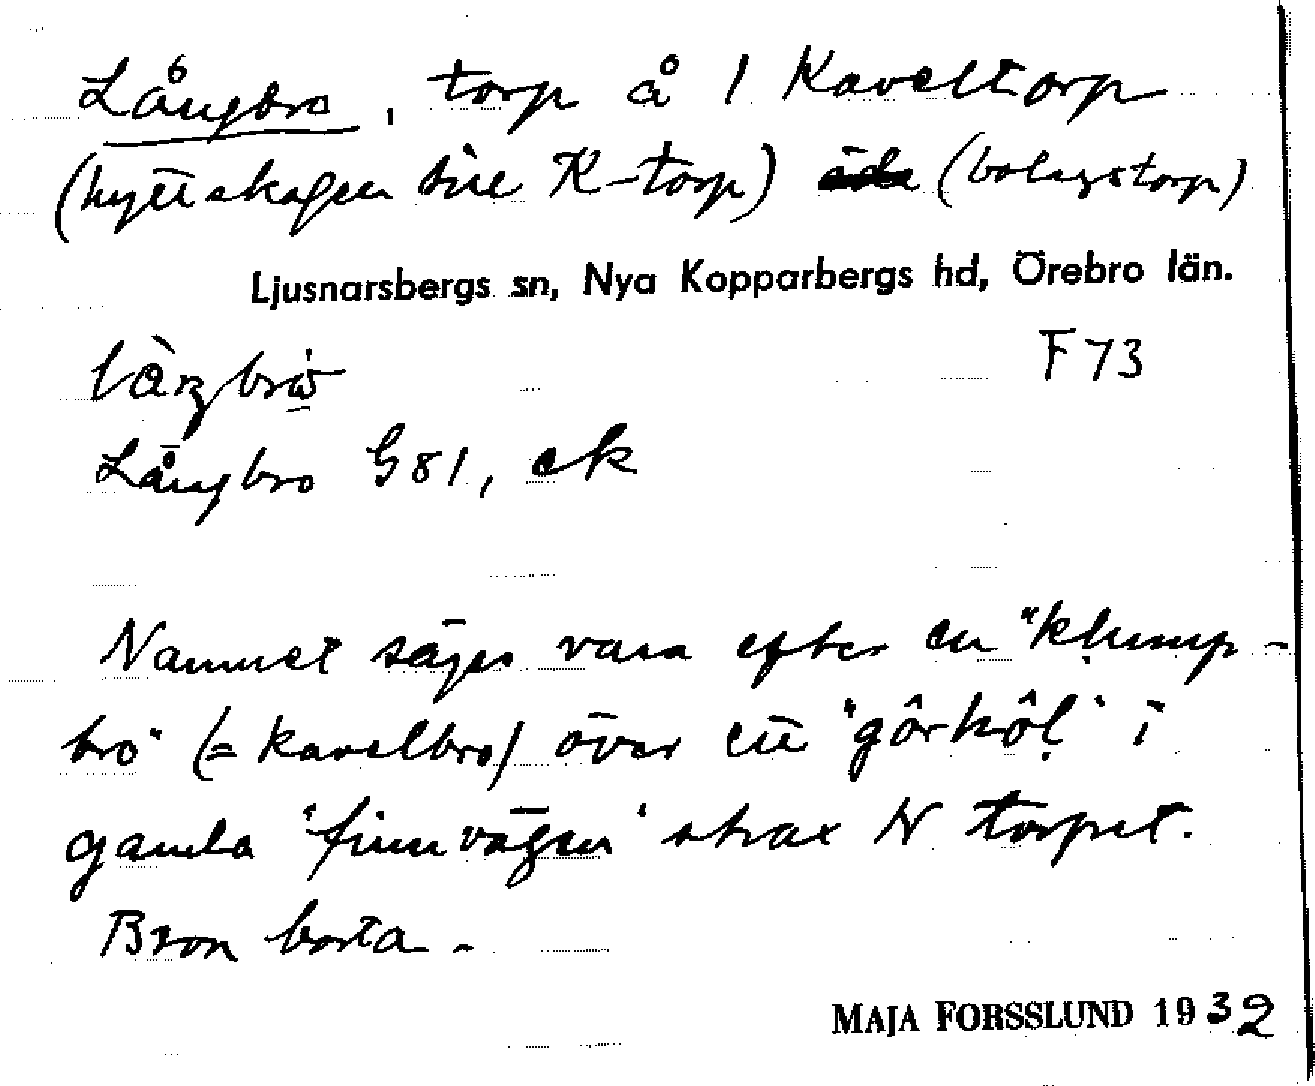 Långbro, torp å 1 Kaveltorp
(hyttskogen till K-torp) (bolagstorp)
Ljusnarsbergs sn, Nya Kopparbergs hd, Örebro län.
F 73
Långbro G81, ek
Namnet säges vara efter en "klump-
bro" (= kavelbro) över ett "görhôl" i
gamla "finnvägen" strax N torpet.
Bron borta.
MAJA FORSSLUND 1932